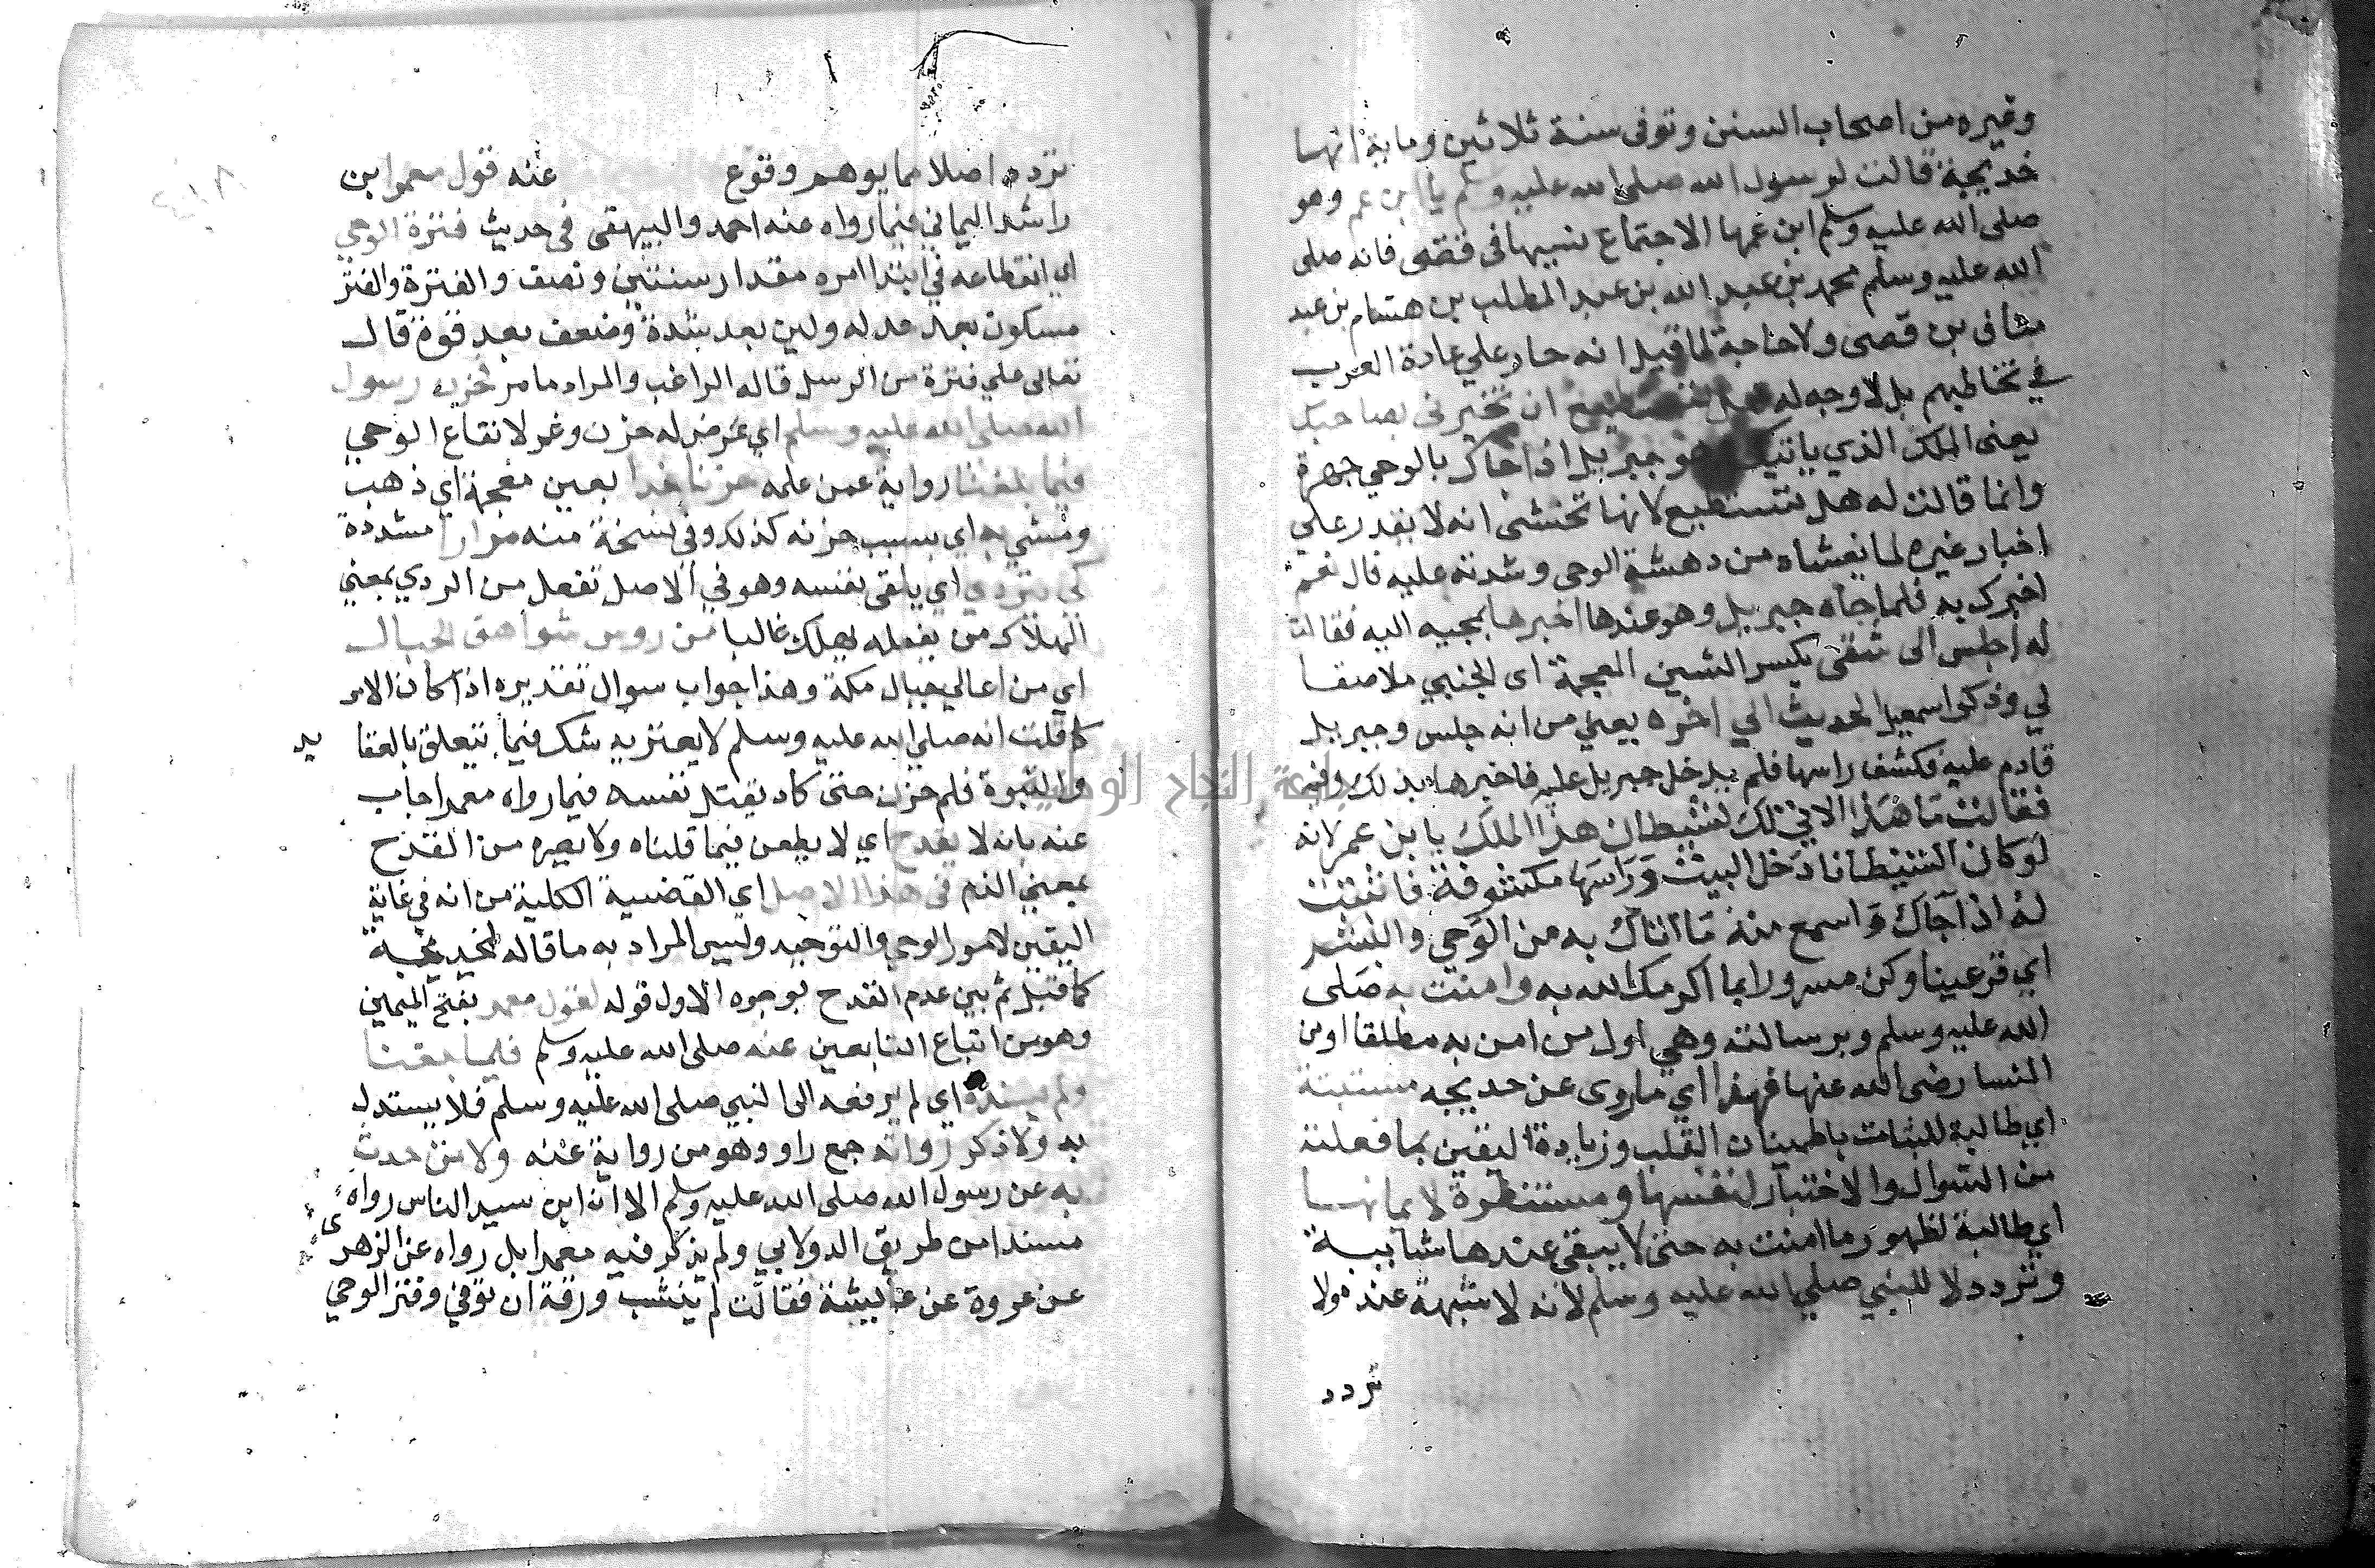 وغيره من اصحاب السنن وتوفى سنة ثلاثين وماية انها
خديجة قالت لرسول الله صلى الله عليه وسلم يا ابن عم وهو
صلى الله عليه وسلم ابن عمها الاجتماع نسبهما فى قصى فانه صلى
الله عليه وسلم محمد بن عبد الله بن عبد المطلب بن هشام بن عبد
مناف بن قصى ولا حاجة لما قيل انه جار على عادة العرب
في تخاطبهم بل لا وجه له هل تستطيع ان تخبرنى بصاحبك
يعنى الملك الذي ياتيك هو جبريل اذا جاك بالوحي جهرة
وانما قالت له هل تستطيع لانها تخشى انه لا يقدر على
اخبار غيره لما يغشاه من دهشة الوحى وشدته عليه قال نعم
اخبرك به فلما جاه جبريل وهو عندها اخبرها بمجيه اليه فقالت
له اجلس الى شقى بكسر الشين المعجمة اى لجنبي ملاصقا
لي وذكر اسمعيل الحديث الي اخره يعني من انه جلس وجبريل
قادم عليه فكشف راسها فلم يدخل جبريل عليه فاخبرها بذلك وفيه
فقالت ما هذا الاتي لك لشيطان هذا الملك يا بن عم لانه
لو كان الشيطانا دخل البيت وراسها مكشوفة فاثبت
له اذا جاك واسمع منه ما اتاك به من الوحي والبشر
اي قر عينا وكن مسرورا بما اكرمك الله به وامنت به صلى
الله عليه وسلم وبرسالته وهي اول من امن به مطلقا او من
النسا رضى الله عنها فهذا اي ما روى عن خديجه مستثبتة
اي طالبة للثبات باطمينان القلب وزيادة اليقين بما فعلته
من السوال والاختبار لنفسها ومستظهرة لايمانها
اي طالبة لظهور ما امنت به حتى لا يبقى عندها شايبة
وتردد لا للنبي صلى الله عليه وسلم لانه لا شبهة عنده ولا
تردد
تردد اصلا مما يوهم وقوع عنه قول معمر ابن
راشد اليماني فيما رواه عنه احمد والبيهقى فى حديث فترة الوحي
اي انقطاعه في ابتدا امره مقدار سنتين ونصف والفترة والفتر
سكون بعد حدة ولين بعد شدة وضعف بعد قوة قال
تعالى على فترة من الرسل قاله الراغب والمراد ما مر لحزن رسول
الله صلى الله عليه وسلم اي عرض له حزن وغم لانقاع الوحي
فيما بلغنا رواية عمن علمه حزنا غدا بعين معجمة اي ذهب
ومشي به اي بسبب حزنه كذلك وفى نسخة منه مرارا مشددة
كي يتردي اي يلقى بنفسه وهو في الاصل تفعل من الردي بمعني
الهلاك من يفعله يهلك غالبا من روس شواهق الجبال
اي من اعالي جبال مكة وهذا جواب سوال تقديره اذا كان الامر
كما قلت انه صلى الله عليه وسلم لا يعتريه شك فيما يتعلق بالعقا
يد
والنبوة فلم حزن حتى كاد يقتل نفسه فيما رواه معمر اجاب
عنه بانه لا يقدح اي لا يطعن فيما قلناه ولا يضره من القدح
بمعني الذم فى هذا الاصل اي القضية الكلية من انه في غاية
اليقين لامور الوحي والتوحيد وليس المراد به ما قاله لخديجة
كما قيل ثم بين عدم القدح بوجوه الاول قوله لقول معمر بفتح الميمين
وهو من اتباع التابعين عنه صلى الله عليه وسلم فيما بلغنا
ولم يسنده اي لم يرفعه الى النبي صلى الله عليه وسلم فلا يستدل
به ولا ذكر رواته جمع راو وهو من رواية عنه ولا من حدث
به عن رسول الله صلى الله عليه وسلم الا ان ابن سيد الناس رواه
مسندا من طريق الدولابي ولم يذكر فيه معمرا بل رواه عن الزهرى
عن عروة عن عايشة فقالت لم ينشب ورقة ان توفي وفتر الوحي
جامعة النجاح الوطنية